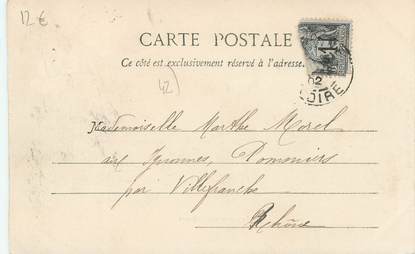 12 €
CARTE POSTALE
Ce côté est exclusivement réservé à l'adresse.
02
LOIRE
42
Mademoiselle Marthe Morel
aux
par Villefranche
Rhône